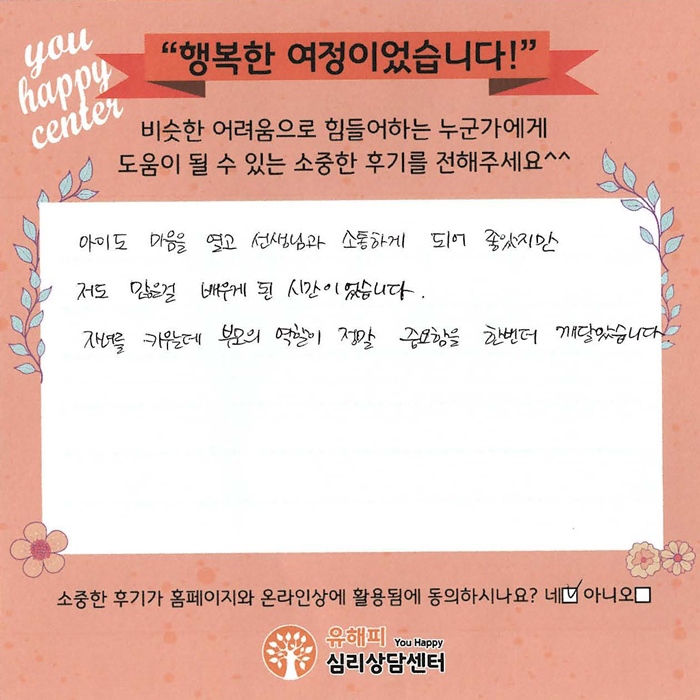 you
happy
center
“행복한 여정이었습니다!”
비슷한 어려움으로 힘들어하는 누군가에게
도움이 될 수 있는 소중한 후기를 전해주세요^^
아이도 마음을 열고 선생님과 소통하게 되어 좋았지만
저도 많은걸 배우게 된 시간이었습니다.
자녀를 키우는데 부모의 역할이 정말 중요함을 한번더 깨달았습니다.
소중한 후기가 홈페이지와 온라인상에 활용됨에 동의하시나요? 네☑ 아니오☐
유해피 You Happy
심리상담센터